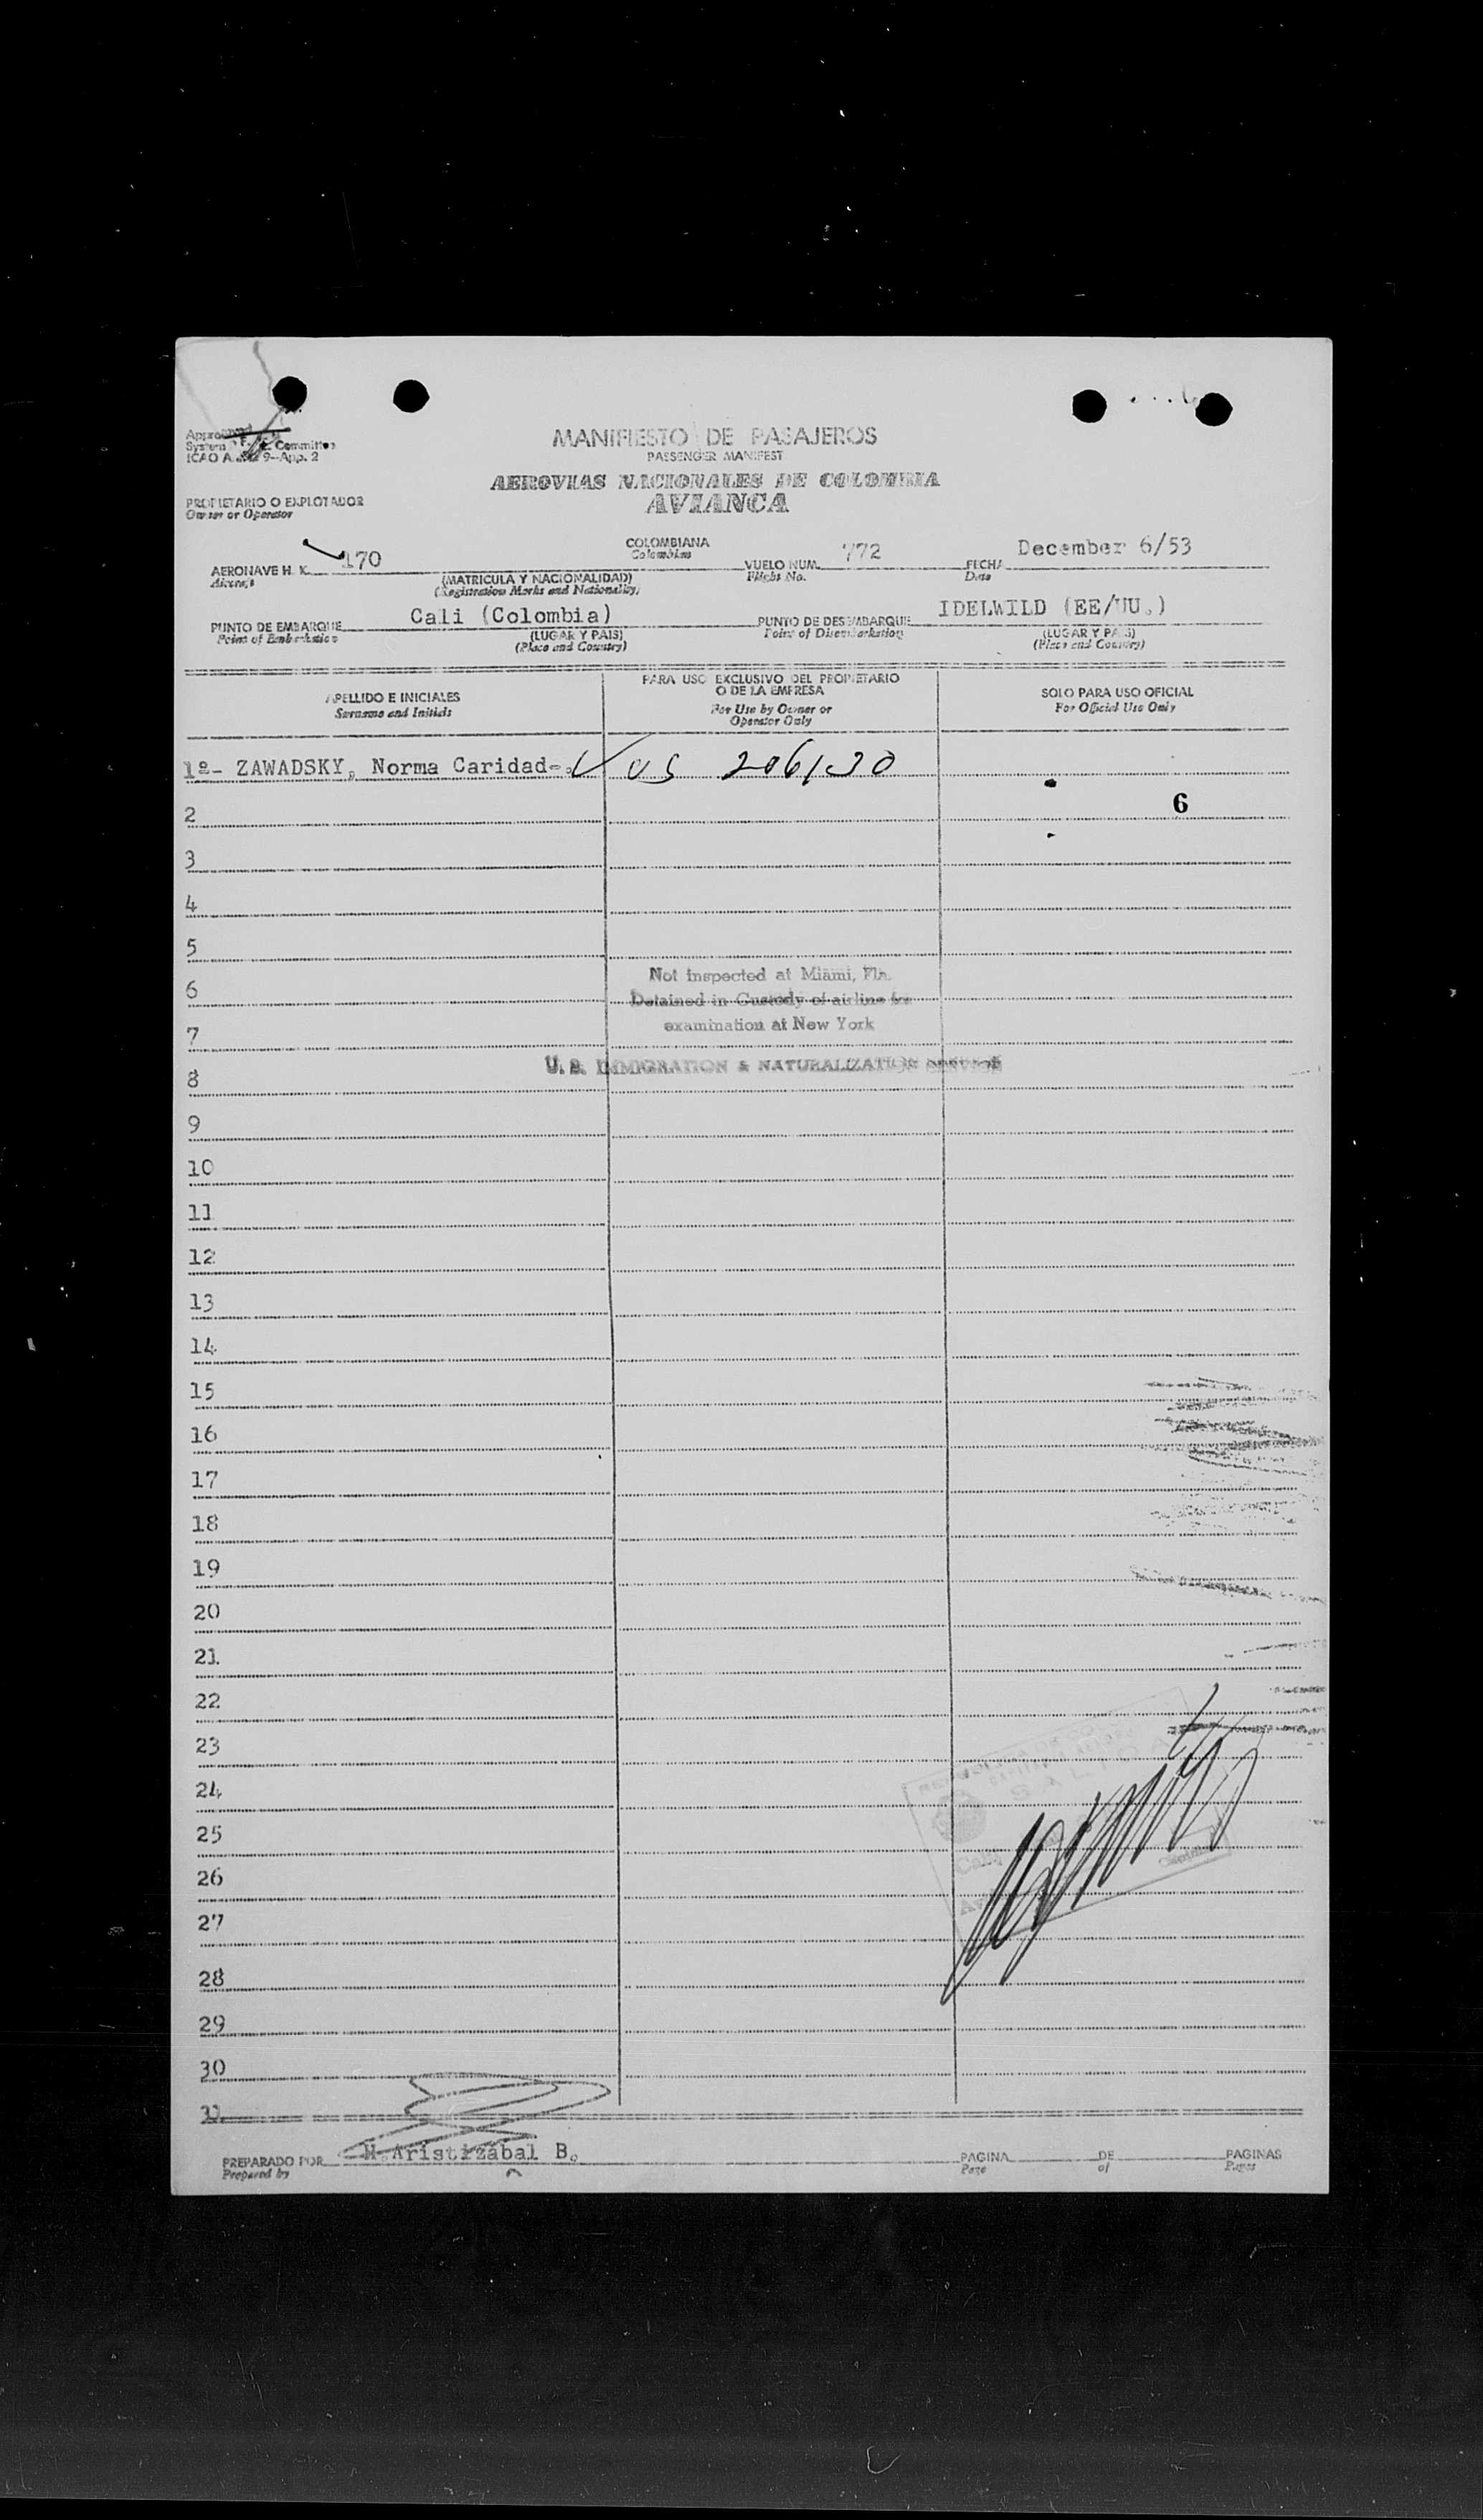 MANIFIESTO DE PASAJEROS
PASSENGER MANIFEST
AEROVIAS NACIONALES DE COLOMBIA
AVIANCA
System Committee
ICAO 9-App. 2
PROPIETARIO O EXPLOTADOR
Owner or Operator
AERONAVE H. K. 170
Aircraft
COLOMBIANA
Colombian
(MATRICULA Y NACIONALIDAD)
(Registration Marks and Nationality)
VUELO NUM. 772
Flight No.
FECHA December 6/53
Date
PUNTO DE EMBARQUE Cali (Colombia)
Point of Embarkation
(LUGAR Y PAIS)
(Place and Country)
PUNTO DE DESEMBARQUE IDELWILD (EE/UU.)
Point of Disembarkation
(LUGAR Y PAIS)
(Place and Country)
APELLIDO E INICIALES
Surname and Initials
PARA USO EXCLUSIVO DEL PROPIETARIO
O DE LA EMPRESA
For Use by Owner or
Operator Only
SOLO PARA USO OFICIAL
For Official Use Only
1º- ZAWADSKY, Norma Caridad-. US 206130
2 6
3
4
5
Not inspected at Miami, Fla.
6 Detained in Custody of airline for
examination at New York
7
U. S. IMMIGRATION & NATURALIZATION SERVICE
8
9
10
11
12
13
14
15
16
17
18
19
20
21
22
23
24
25
26
27
28
29
30
PREPARADO POR H.Aristizábal B.
Prepared by
PAGINA DE PAGINAS
Page of Pages